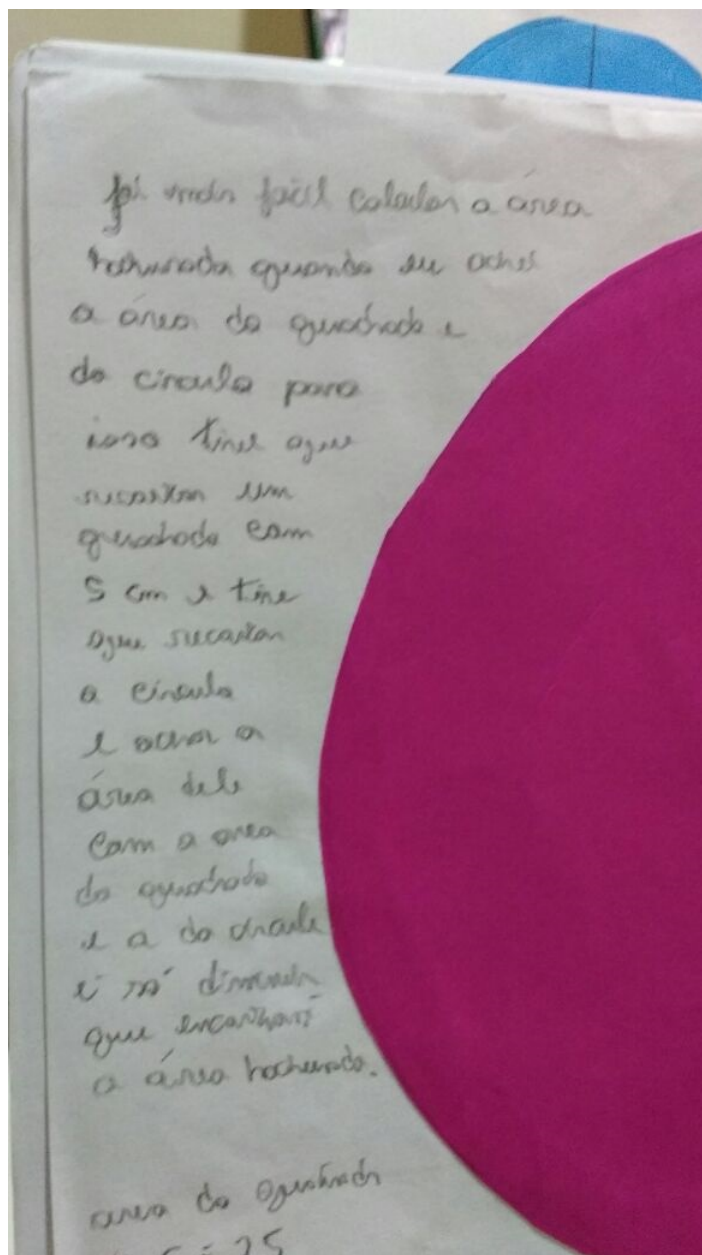 foi mais fácil calcular a área
hachurada quando eu achei
a área do quadrado e
do circulo para
isso tive que
recortar um
quadrado com
5 cm e tive
que recortar
o circulo
e achar a
área dele
com a area
do quadrado
e a do circulo
é só diminuir
que encontrará
a área hachurada.
area do quadrado
= 25